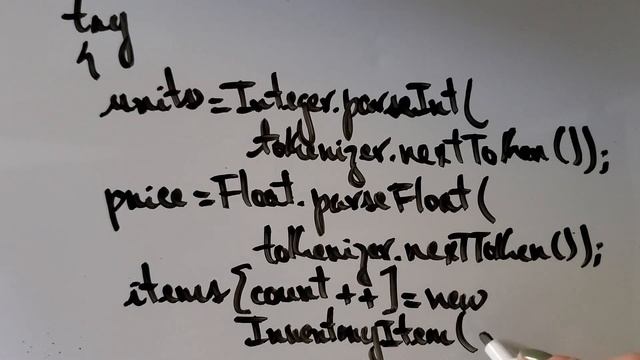 try
{
units=Integer.parseInt(
tokenizer.nextToken());
price=Float.parseFloat(
tokenizer.nextToken());
items[count++]=new
InventoryItem(